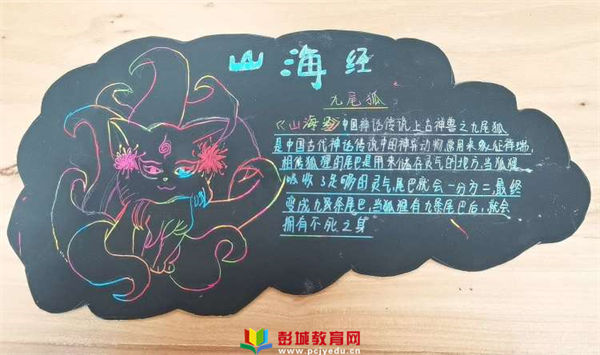 山海经
九尾狐
《山海经》中国神话传说上古神兽之九尾狐
是中国古代神话传说中国神异动物原用来象征祥瑞,
相传狐狸的尾巴是用来储存灵气的地方,当狐狸
吸收了足够的灵气,尾巴就会一分为二,最终
变成九条尾巴,当狐狸有九条尾巴后,就会
拥有不死之身
彭城教育网
www.pcjyedu.cn